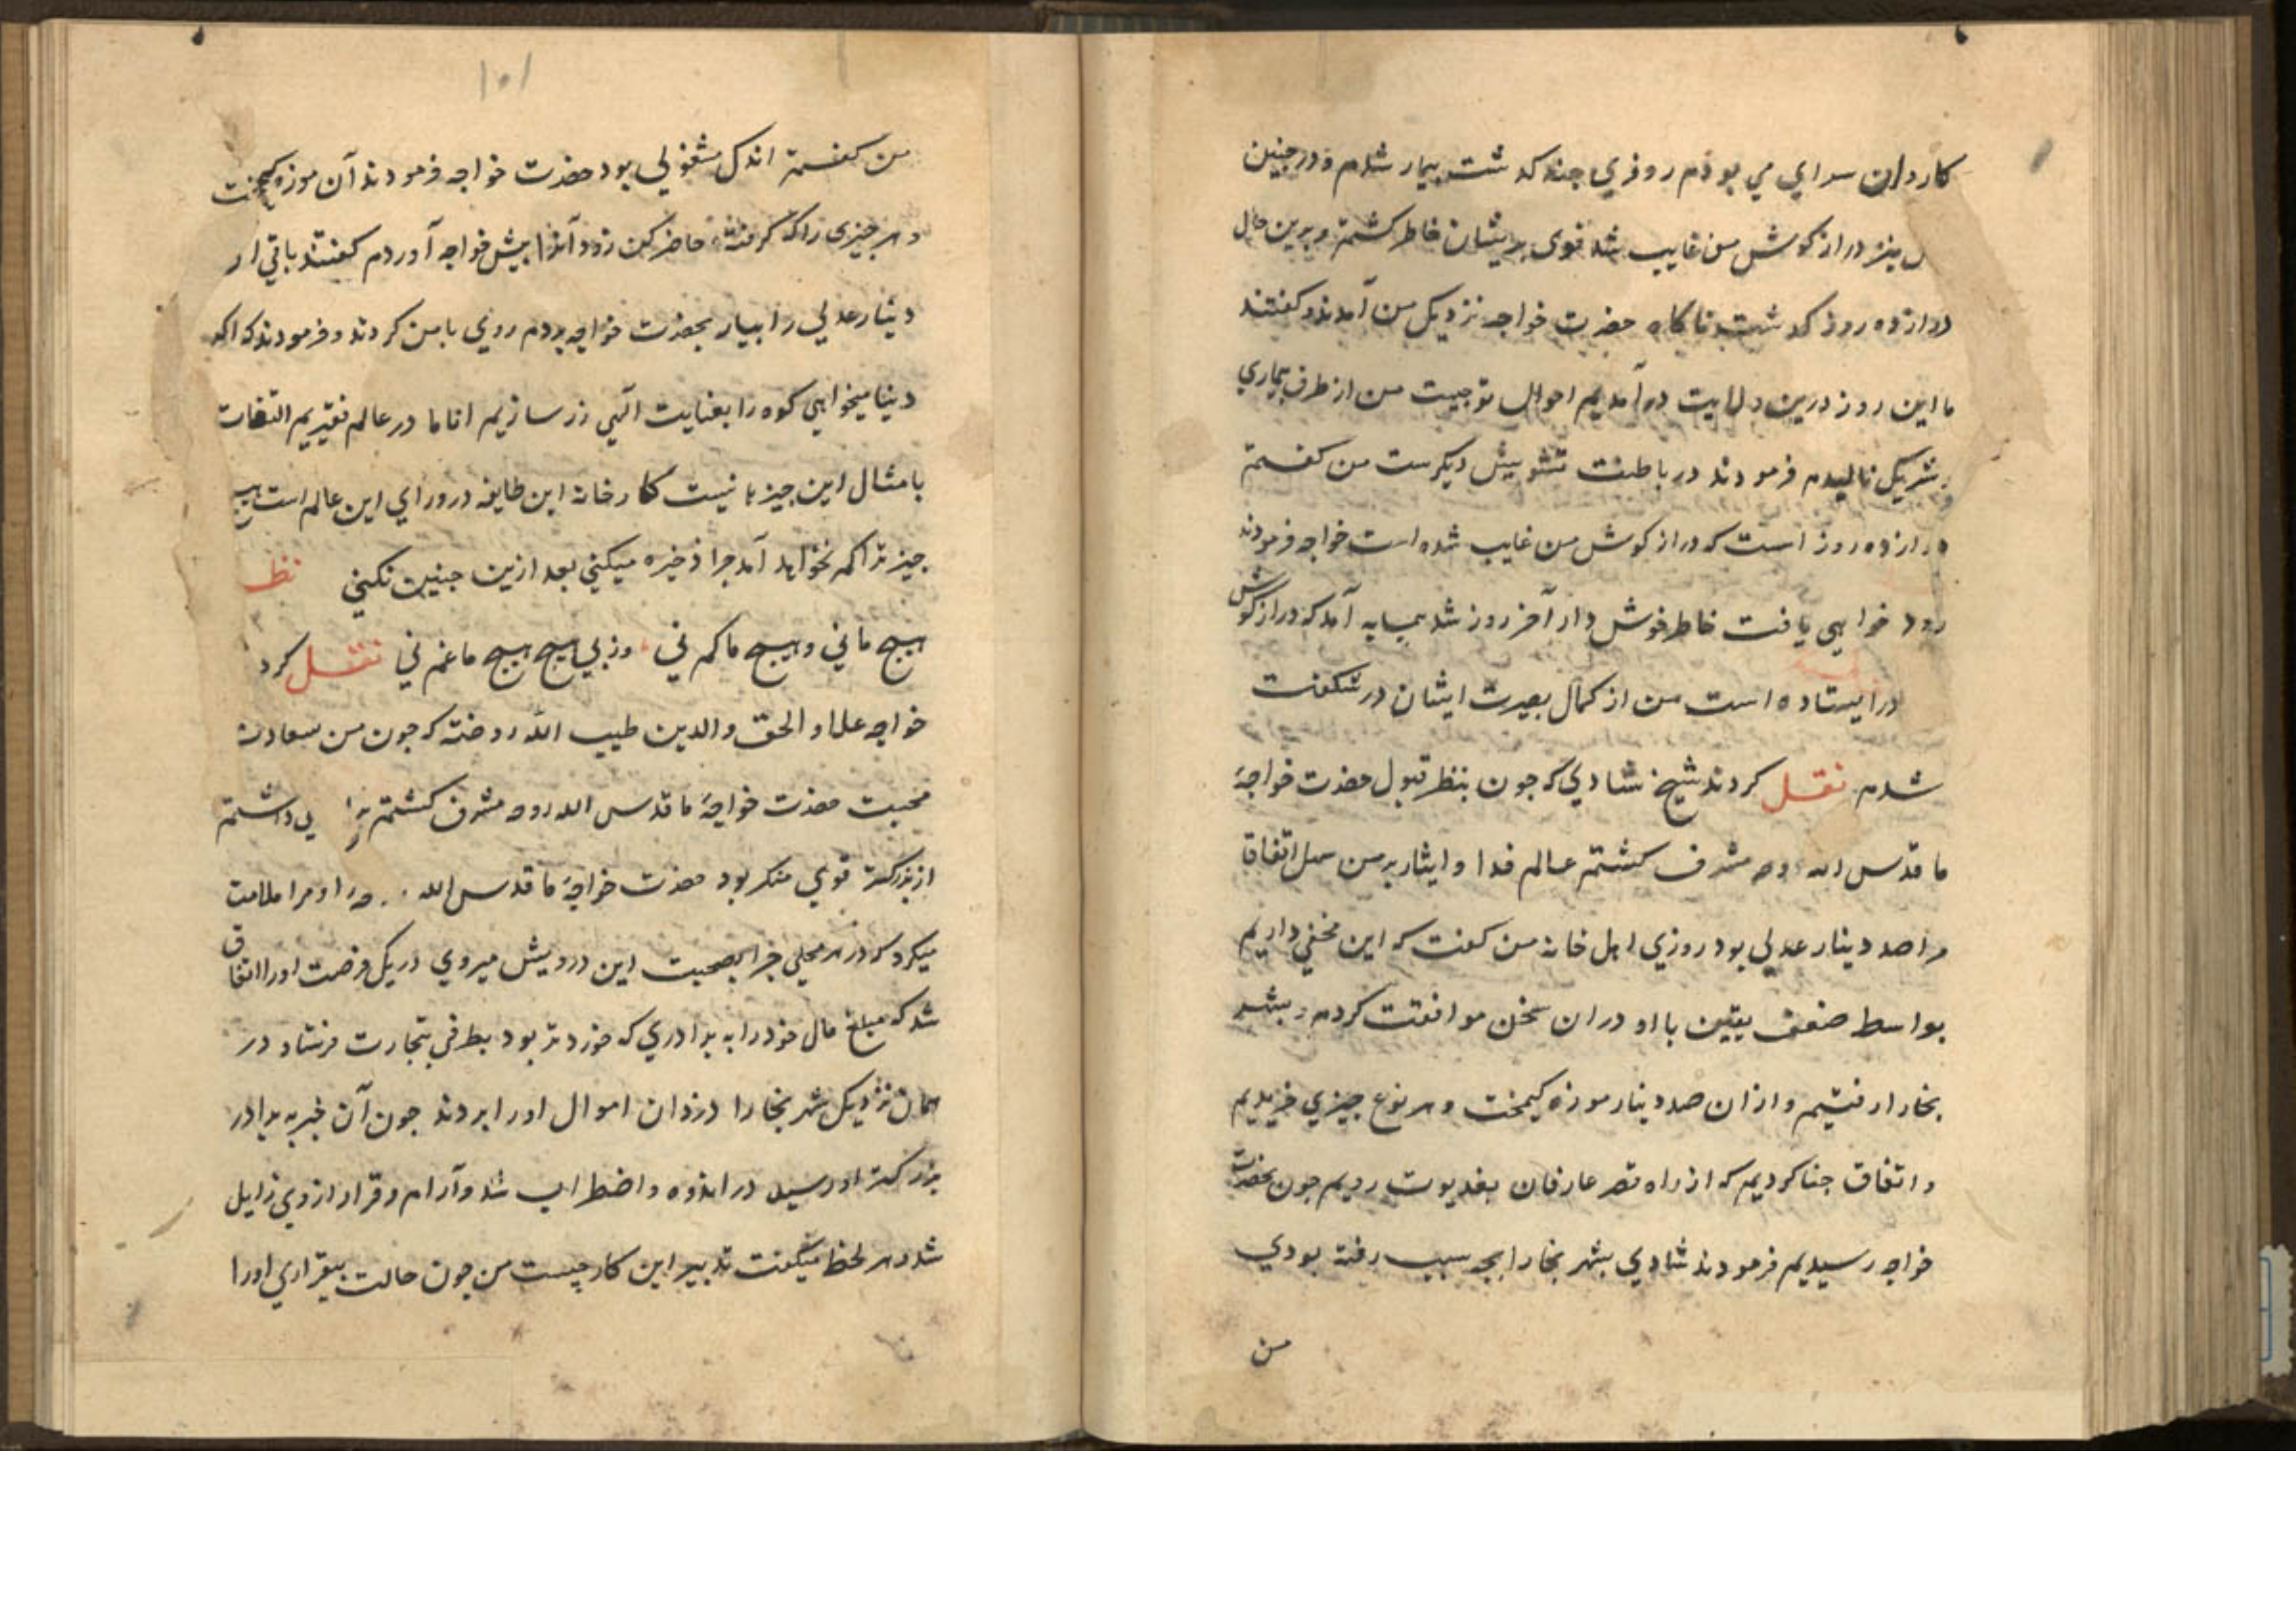 کاروان سرای می بودم روزی چند که شت بیمار شدم و در چنین
نیز دراز کوش من غایب شد قوی پریشان خاطر کشتم و برین حال
دوازده روز کذشت ناکاه حضرت خواجه نزدیک من آمدند و کفتند
ما این روز درین ولایت در آمدیم احوال تو چیست من از طرف بیماری
نالیدم فرمودند در باطنت تشویش دیکرست من کفتم
دوازده روز است که دراز کوش من غایب شده است خواجه فرمودند
زود خواهی یافت خاطر خوش دار آخر روز شد همسایه آمد که دراز کوش
در ایستاده است من از کمال بصیرت ایشان در شکفت
شدم نقل کردند شیخ شادی که چون بنظر قبول حضرت خواجۀ
ما قدس الله روحه مشرف کشتم عالم فدا و ایثار بر من سهل اتفاقا
مرا صد دینار عدلی بود روزی اهل خانه من کفت که این مخفی داریم
بواسط ضعف یقین با او دران سخن موافقت کردم و بشهر
بخارا رفتیم و ازان صد دینار موزه کیمخت و هر نوع چیزی خریدیم
و اتفاق چنا کردیم که از راه قصر عارفان بغدیوت رویم چون بحضرت
خواجه رسیدیم فرمودند شادی بشهر بخارا بچه سبب رفته بودی
من
۱۰۱
من کفتم اندک مشغولی بود حضرت خواجه فرمودند آن موزه کیمخت
و هر چیزی را که کرفتۀ حاضر کن زود آنرا پیش خواجه آوردم کفتند باقی از
دینار عدلی را بیار بحضرت خواجه بردم روی با من کردند و فرمودند که اکر
دنیا میخواهی کوه را بعنایت الهی زر سازیم اما ما در عالم فقیریم التفات
بامثال این چیزها نیست کارخانه این طایفه در ورای این عالم است هیچ
چیز ترا کم نخواهد آمد چرا ذخیره میکنی بعد ازین چنین نکنی نظم
هیچ ما نی و هیچ ما کم نی وز پی هیچ هیچ ما غم نی نقل کرد
خواجه علاء الحق والدین طیب الله روضته که چون من بسعادت
محبت حضرت خواجۀ ما قدس الله روحه مشرف کشتم داشتم
از بزرکتر قوی منکر بود حضرت خواجۀ ما قدس الله او مرا ملامت
میکرد که در هر محلی چرا بصحبت این درویش میروی در یک فرصت او را اتفاق
شد که مبلغ مال خود را به برادری که خوردتر بود بطرفی بتجارت فرستاد در
همان نزدیک شهر بخارا دزدان اموال او را بردند چون آن خبر به برادر
بزرکتر او رسید در اندوه و اضطراب شد و آرام و قرار از وی زایل
شد و هر لحظ میکفت تدبیر این کار چیست من چون حالت بیقراری او را